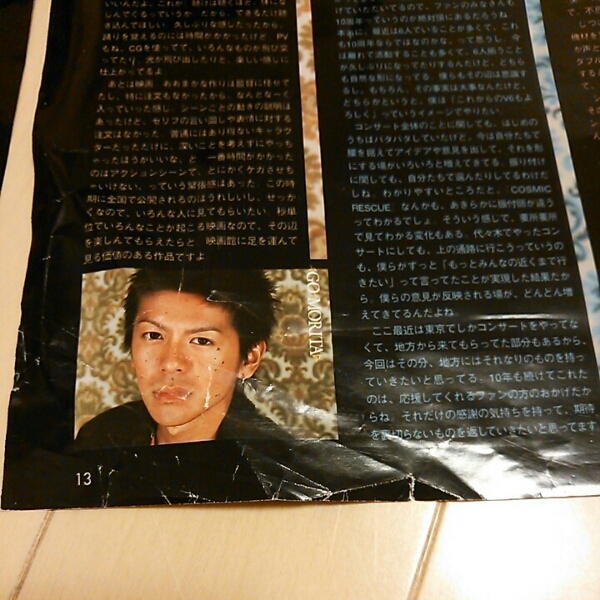 しんでくるっていうか。だから、できるだけ聴
もね、CGを使ってて、いろんなものが飛び交
ってたり、光が飛び出したりと、楽しい感じに
仕上がってるよ
あとは映画。おおまかな作りは監督に任せて
あったけど、セリフの言い回しや表情に対する
注文はなかった。普通にはあり得ないキャラク
ターだっただけに、深いことを考えすにやっち
ゃったほうがいいな、と。一番時間がかかった
のはアクションシーンで、とにかくケガさせち
ゃいけない、っていう緊張感はあった。この時
期に全国で公開されるのはうれしいし、せっか
くなので、いろんな人に見てもらいたい。杉並
位でいろんなことが起こる映画なので、その辺
を楽しんでもらえたらと、映画館に足を運んで
見る価値のある作品ですよ
GO MORITA
13
けてもいただいてるので、ファンのみなさんも
10周年っていうのが絶対頂にあるだろうね。
本当に、最近は6人でいることが多くて、これ
も10周年ならではなのかな、って思うし。今
らも自然な形になってる。僕らもその辺は意識す
るし、もちろん、その事実は大事なんだけど、
どちらかというと、僕は「これからのV6もよ
ろしく」っていうイメージでやりたい。
コンサート全体のことに関しても、はじめの
うちはバタバタしていたけど、今は自分たちで
腰を据えてアイデアや意見を出して、それを形
にする場がいろいろと増えてきてる。振り付け
に関しても、自分たちで選んだりしてるわけだ
しね。わかりやすいところだと、「COSMIC
RESCUE」なんかも、あきらかに振付師が違う
ってわかるでしょ。そういう感じで、要所要所
で見てわかる変化もある。代々木でやったコン
サートにしても、上の通路に行こうっていうの
も、僕らがずっと「もっとみんなの近くまで行
きたい」って言ってたことが実現した結果だか
ら。僕らの意見が反映される場が、どんどん増
えてきてるんだよね。
ここ最近は東京でしかコンサートをやってな
くて、地方から来てもらってた部分もあるから、
今回はその分、地方にはそれなりのものを持っ
ていきたいと思ってる。10年も続けてこれた
のは、応援してくれるファンの方のおかげだか
らね。それだけの感謝の気持ちを持って、期待
を裏切らないものを返していきたいと思ってます